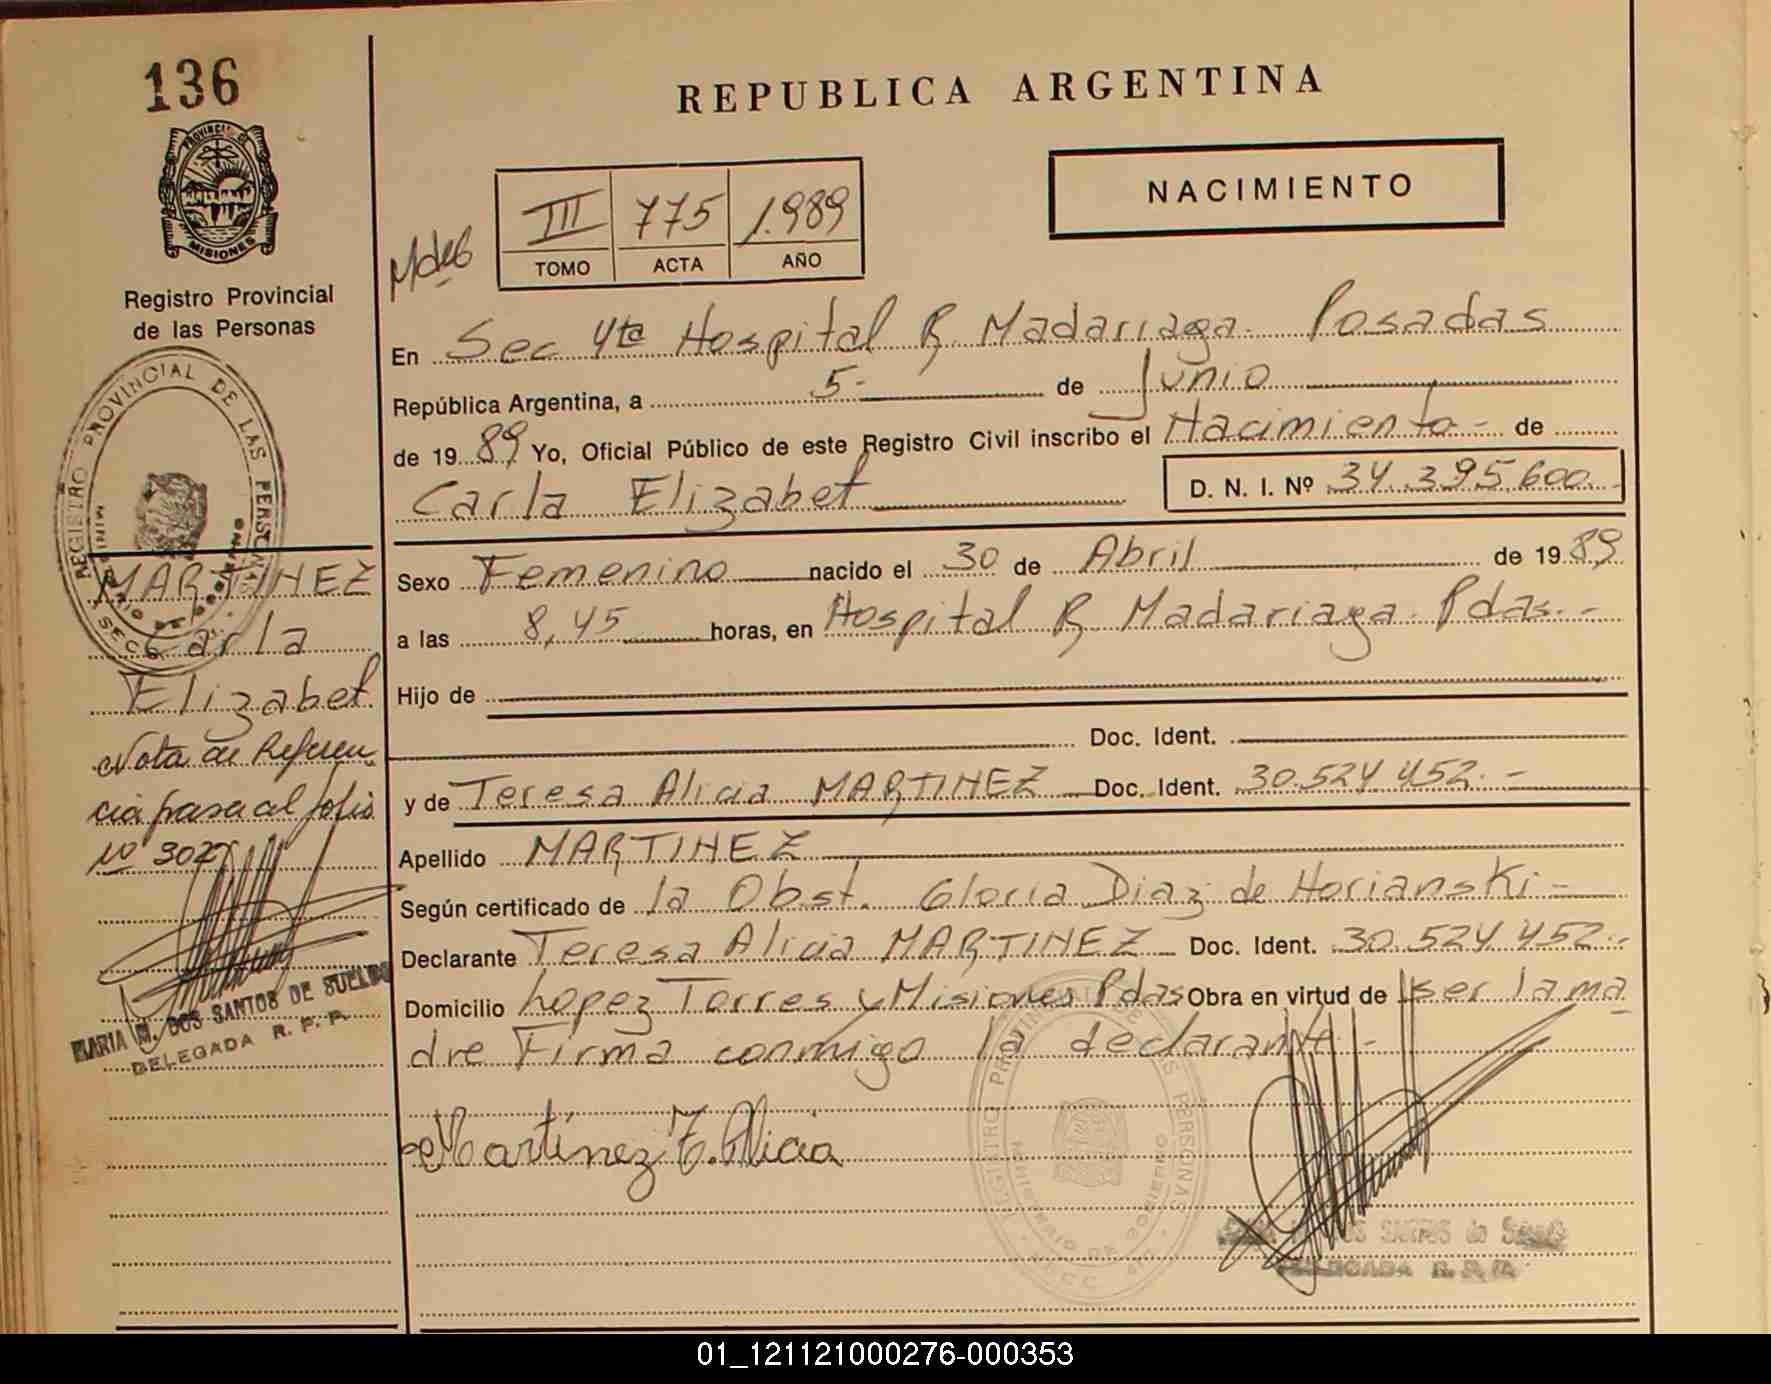 136
REPUBLICA ARGENTINA
PROVINCIA DE
MISIONES
Registro Provincial
de las Personas
III 775 1.989
TOMO ACTA AÑO
NACIMIENTO
En Sec 4ta Hospital R. Madariaga Posadas
República Argentina, a 5- de Junio
de 1989 Yo, Oficial Público de este Registro Civil inscribo el Nacimiento - de
Carla Elizabet
D. N. I. Nº 34.395.600
REGISTRO PROVINCIAL DE LAS PERSONAS
MINISTERIO DE GOBIERNO
SECC
MARTINEZ
Carla
Elizabet
Nota de Referen
cia pasa al folio
Nº 302
MARIA M. DOS SANTOS DE SUELDO
DELEGADA R. P. P.
Sexo Femenino nacido el 30 de Abril de 1989
a las 8,45 horas, en Hospital R. Madariaga Pdas.-
Hijo de
Doc. Ident.
y de Teresa Alicia MARTINEZ Doc. Ident. 30.524.452.-
Apellido MARTINEZ
Según certificado de la Obst. Gloria Diaz de Horianski -
Declarante Teresa Alicia MARTINEZ Doc. Ident. 30.524.452.-
Domicilio Lopez Torres y Misiones Pdas Obra en virtud de ser la ma
dre Firma conmigo la declarante.-
Martínez T. Alicia
REGISTRO PROVINCIAL DE LAS PERSONAS
MINISTERIO DE GOBIERNO
DOS SANTOS de
DELEGADA R. P. P.
01_121121000276-000353